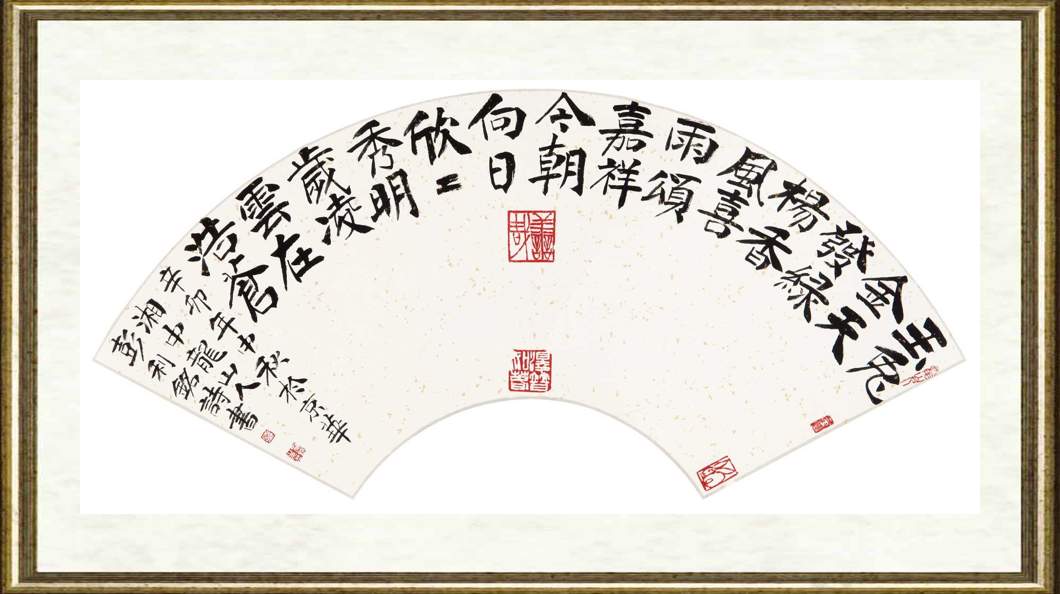 玉兔
金天
發綠
楊香
風喜
雨頌
嘉祥
今朝
向日
欣〻
秀明
歲凌
雲在
浩蒼
辛卯年中秋於京華
湘中龍山人
彭利銘詩書